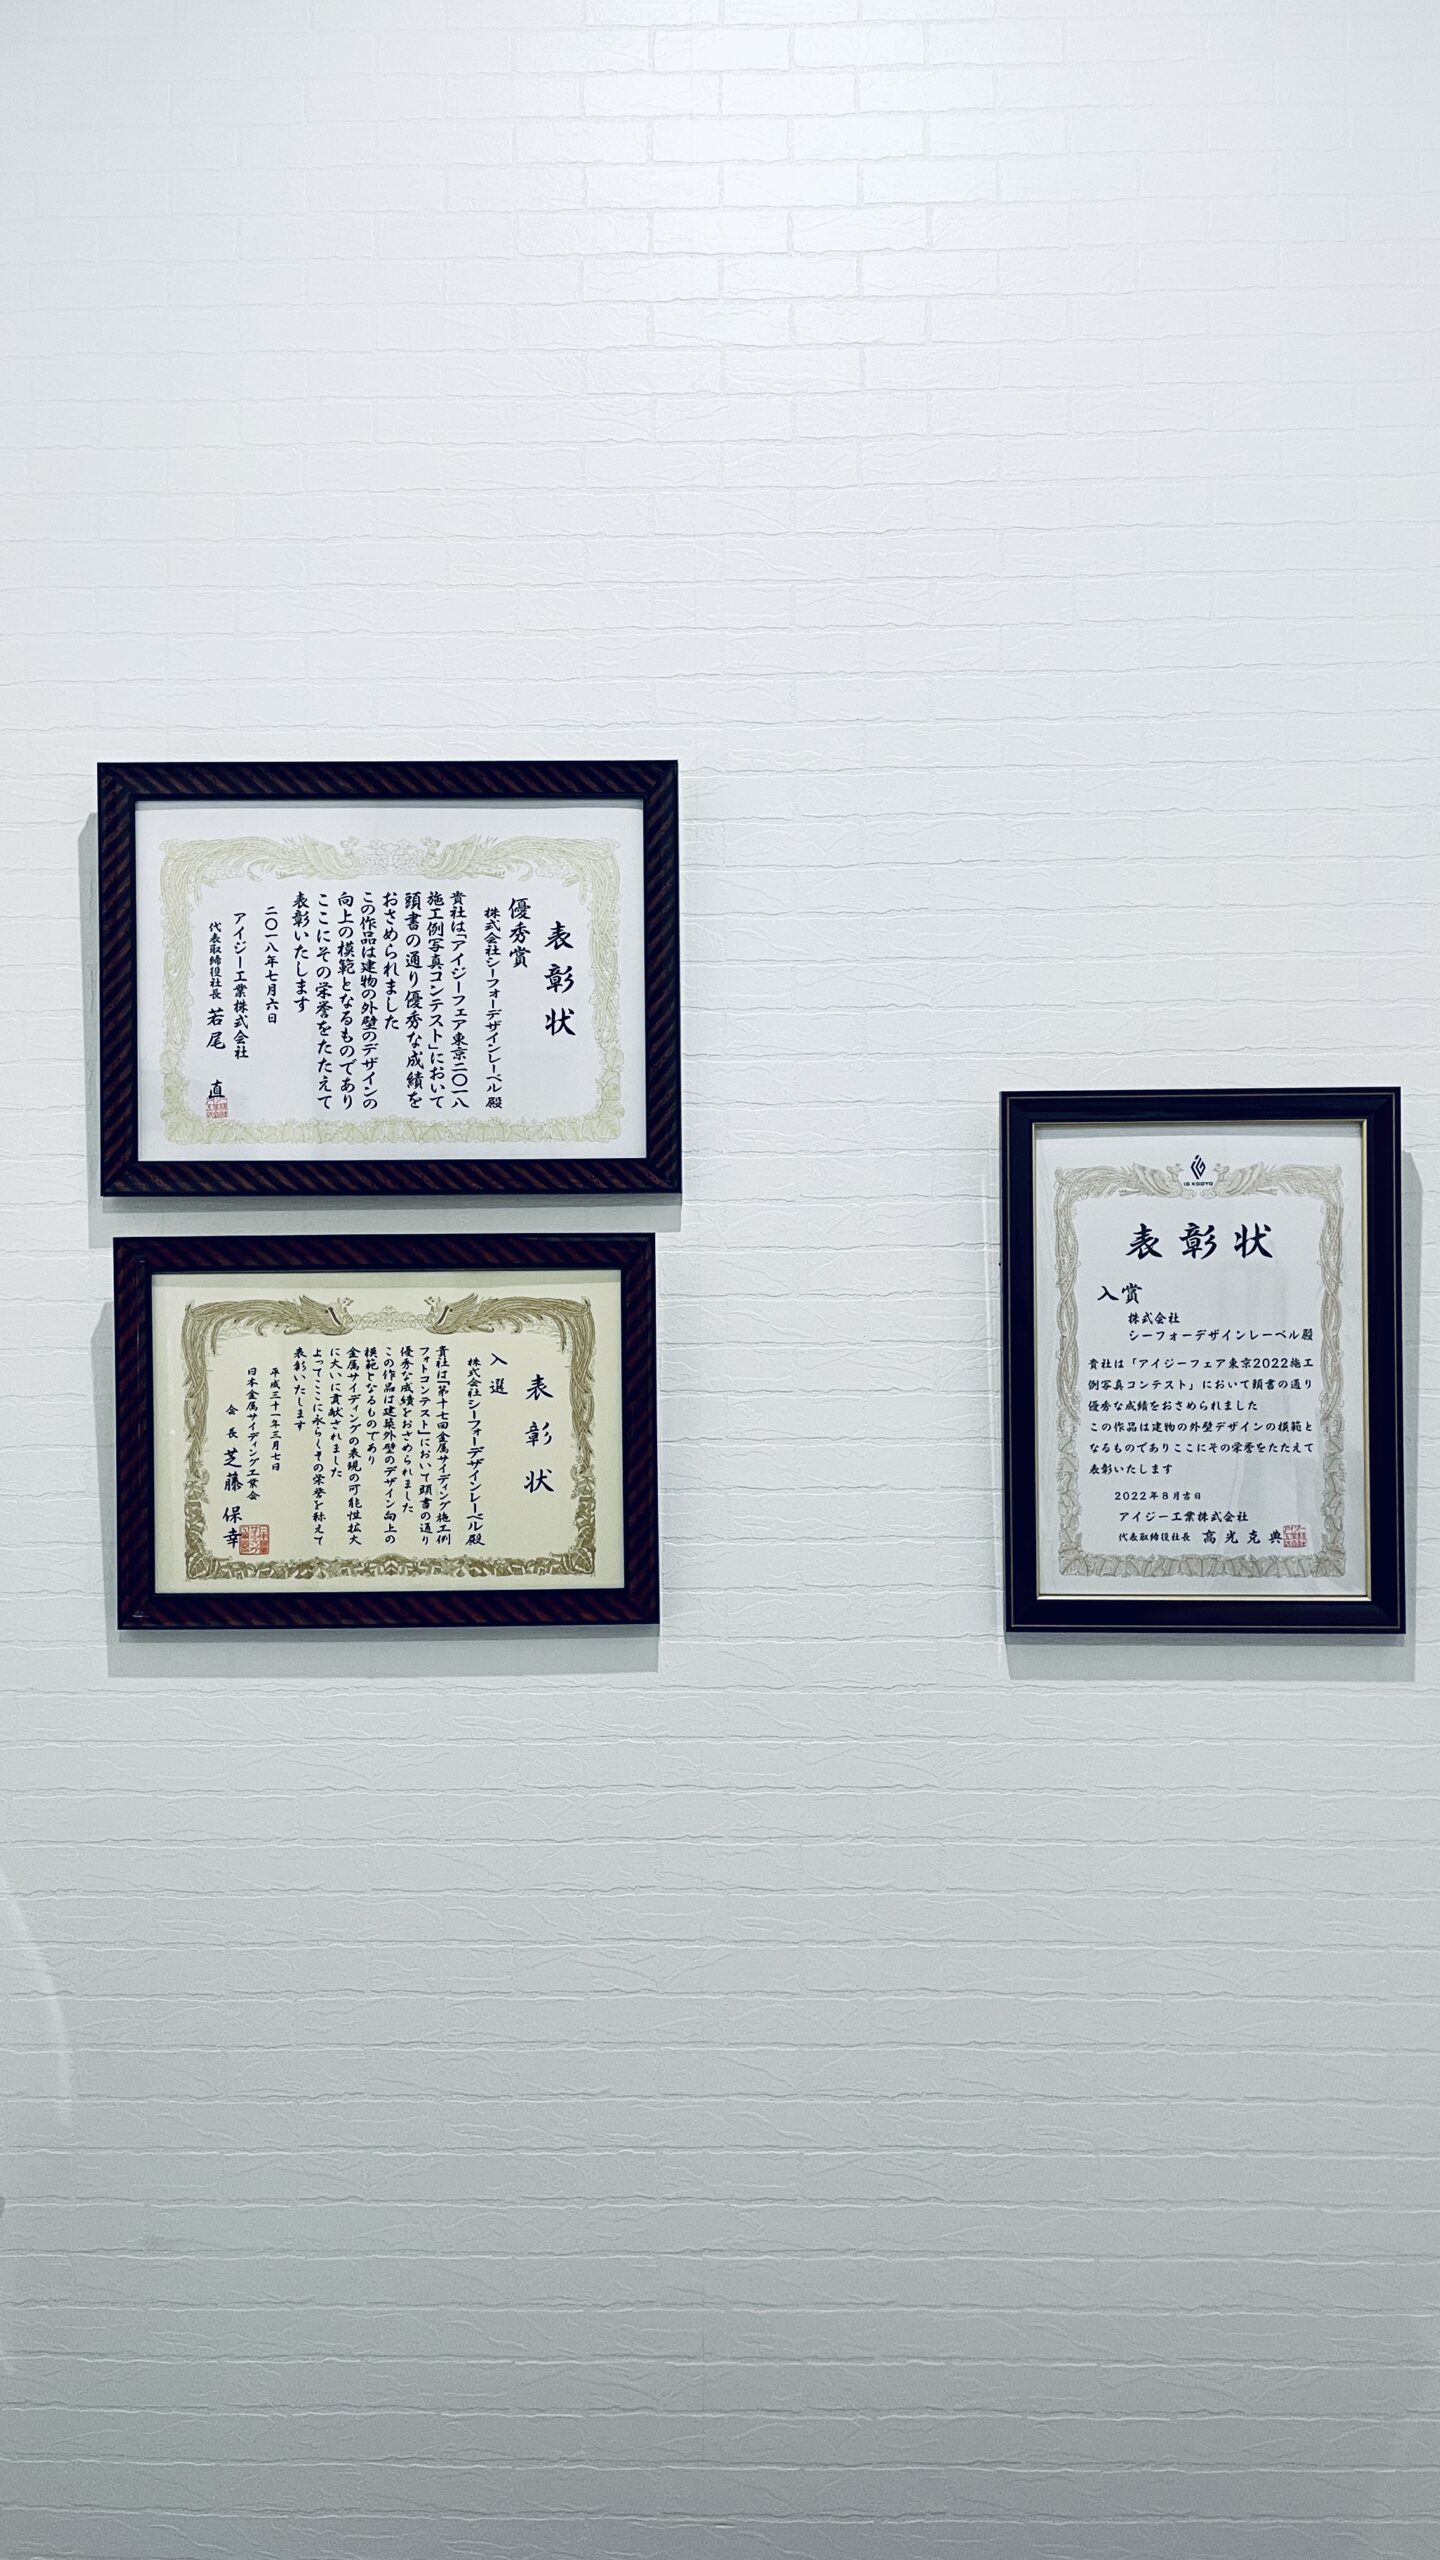 表彰状
優秀賞
株式会社シーフォーデザインレーベル 殿
貴社は「アイジーフェア東京二〇一八
施工例写真コンテスト」において
頭書の通り優秀な成績を
おさめられました
この作品は建物の外壁のデザインの
向上の模範となるものであり
ここにその栄誉をたたえて
表彰いたします
二〇一八年七月六日
アイジー工業株式会社
代表取締役社長 若尾 直
表彰状
入選
株式会社シーフォーデザインレーベル殿
貴社は「第十七回金属サイディング施工例
フォトコンテスト」において頭書の通り
優秀な成績をおさめられました
この作品は建築外壁のデザイン向上の
模範となるものであり
金属サイディングの表現の可能性拡大
に大いに貢献されました
よってここに永らくその栄誉を称えて
表彰いたします
平成三十一年三月七日
日本金属サイディング工業会
会長 芝藤 保幸
IG KOGYO
表彰状
入賞
株式会社
シーフォーデザインレーベル殿
貴社は「アイジーフェア東京2022施工
例写真コンテスト」において頭書の通り
優秀な成績をおさめられました
この作品は建物の外壁デザインの模範と
なるものでありここにその栄誉をたたえて
表彰いたします
2022年8月吉日
アイジー工業株式会社
代表取締役社長 高光克典